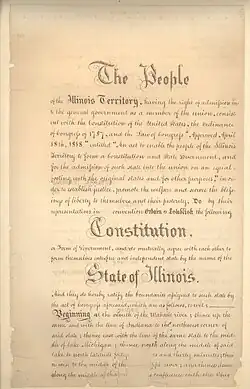 The People
of the Illinois Territory, having the right of admission into
the general government as a member of the union, consist
ent with the Constitution of the United States, the ordinance
of Congress of 1787, and the Law of Congress "Approved April
18th, 1818" entitled "An act to enable the people of the Illinois
Territory to form a Constitution and State Government, and
for the admission of such state into the union on an equal
footing with the original states and for other purposes," in or-
der to establish justice, promote the welfare and secure the bless-
ings of liberty to themselves and their posterity, Do by their
representatives in convention Ordain & Establish the following
Constitution.
or Form of Government, and do mutually agree with each other to
form themselves into a free and independent state by the name of the
State of Illinois.
And they do hereby ratify the boundaries assigned to such state by
the act of congress aforesaid, which are as follows, to wit:
Beginning at the mouth of the Wabash river; thence up the
same and with the line of Indiana to the northwest corner of
said state; thence east with the line of the same state to the mid-
dle of Lake Michigan; thence north along the middle of said
lake to north latitude forty and thirty minutes; thence
west to the middle of the
along the middle of that confluence with the